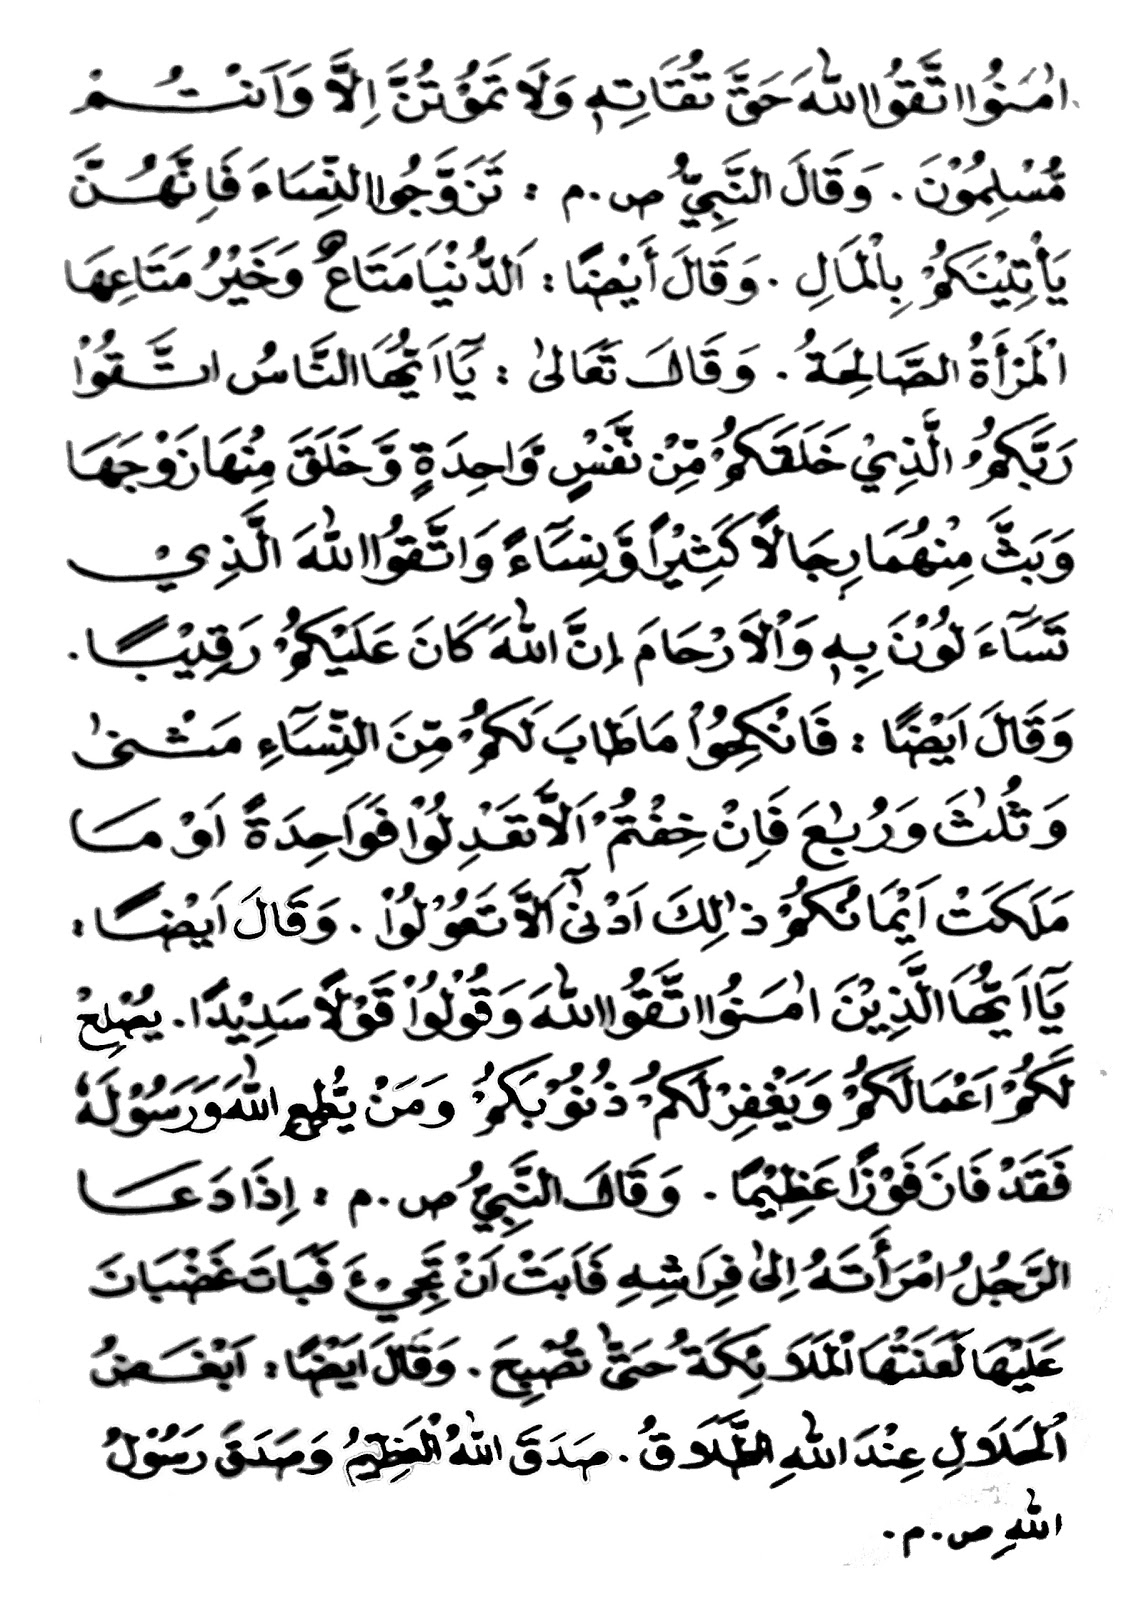 اٰمَنُوا اتَّقُوا اللهَ حَقَّ تُقَاتِهٖ وَلَا تَمُوْتُنَّ اِلَّا وَاَنْتُمْ
مُّسْلِمُوْنَ . وَقَالَ النَّبِيُّ ص . م : تَزَوَّجُوا النِّسَاءَ فَاِنَّهُنَّ
يَأْتِيْنَكُمْ بِالْمَالِ . وَقَالَ أَيْضًا : اَلدُّنْيَا مَتَاعٌ وَخَيْرُ مَتَاعِهَا
الْمَرْأَةُ الصَّالِحَةُ . وَقَالَ تَعَالىٰ : يَآ اَيُّهَا النَّاسُ اتَّقُوْا
رَبَّكُمُ الَّذِيْ خَلَقَكُمْ مِّنْ نَّفْسٍ وَّاحِدَةٍ وَّخَلَقَ مِنْهَا زَوْجَهَا
وَبَثَّ مِنْهُمَا رِجَالًا كَثِيْرًا وَّنِسَآءً وَاتَّقُوا اللهَ الَّذِيْ
تَسَآءَلُوْنَ بِهٖ وَالْاَرْحَامَ اِنَّ اللهَ كَانَ عَلَيْكُمْ رَقِيْبًا .
وَقَالَ اَيْضًا : فَانْكِحُوْا مَاطَابَ لَكُمْ مِّنَ النِّسَآءِ مَثْنىٰ
وَثُلٰثَ وَرُبٰعَ فَاِنْ خِفْتُمْ اَلَّا تَعْدِلُوْا فَوَاحِدَةً اَوْ مَا
مَلَكَتْ اَيْمَانُكُمْ ذٰلِكَ اَدْنىٰٓ اَلَّا تَعُوْلُوْا . وَقَالَ اَيْضًا :
يَآ اَيُّهَا الَّذِيْنَ اٰمَنُوا اتَّقُوا اللهَ وَقُوْلُوْا قَوْلًا سَدِيْدًا . يُصْلِحْ
لَكُمْ اَعْمَالَكُمْ وَيَغْفِرْ لَكُمْ ذُنُوْبَكُمْ وَمَنْ يُّطِعِ اللهَ وَرَسُوْلَهٗ
فَقَدْ فَازَ فَوْزًا عَظِيْمًا . وَقَالَ النَّبِيُّ ص . م : اِذَا دَعَا
الرَّجُلُ امْرَأَتَهُ اِلىٰ فِرَاشِهِ فَاَبَتْ اَنْ تَجِيْءَ فَبَاتَ غَضْبَانَ
عَلَيْهَا لَعَنَتْهَا الْمَلَائِكَةُ حَتّٰى تُصْبِحَ . وَقَالَ اَيْضًا : اَبْغَضُ
الْحَلَالِ عِنْدَ اللهِ الطَّلَاقُ . صَدَقَ اللهُ الْعَظِيْمُ وَصَدَقَ رَسُوْلُ
اللهِ ص . م .